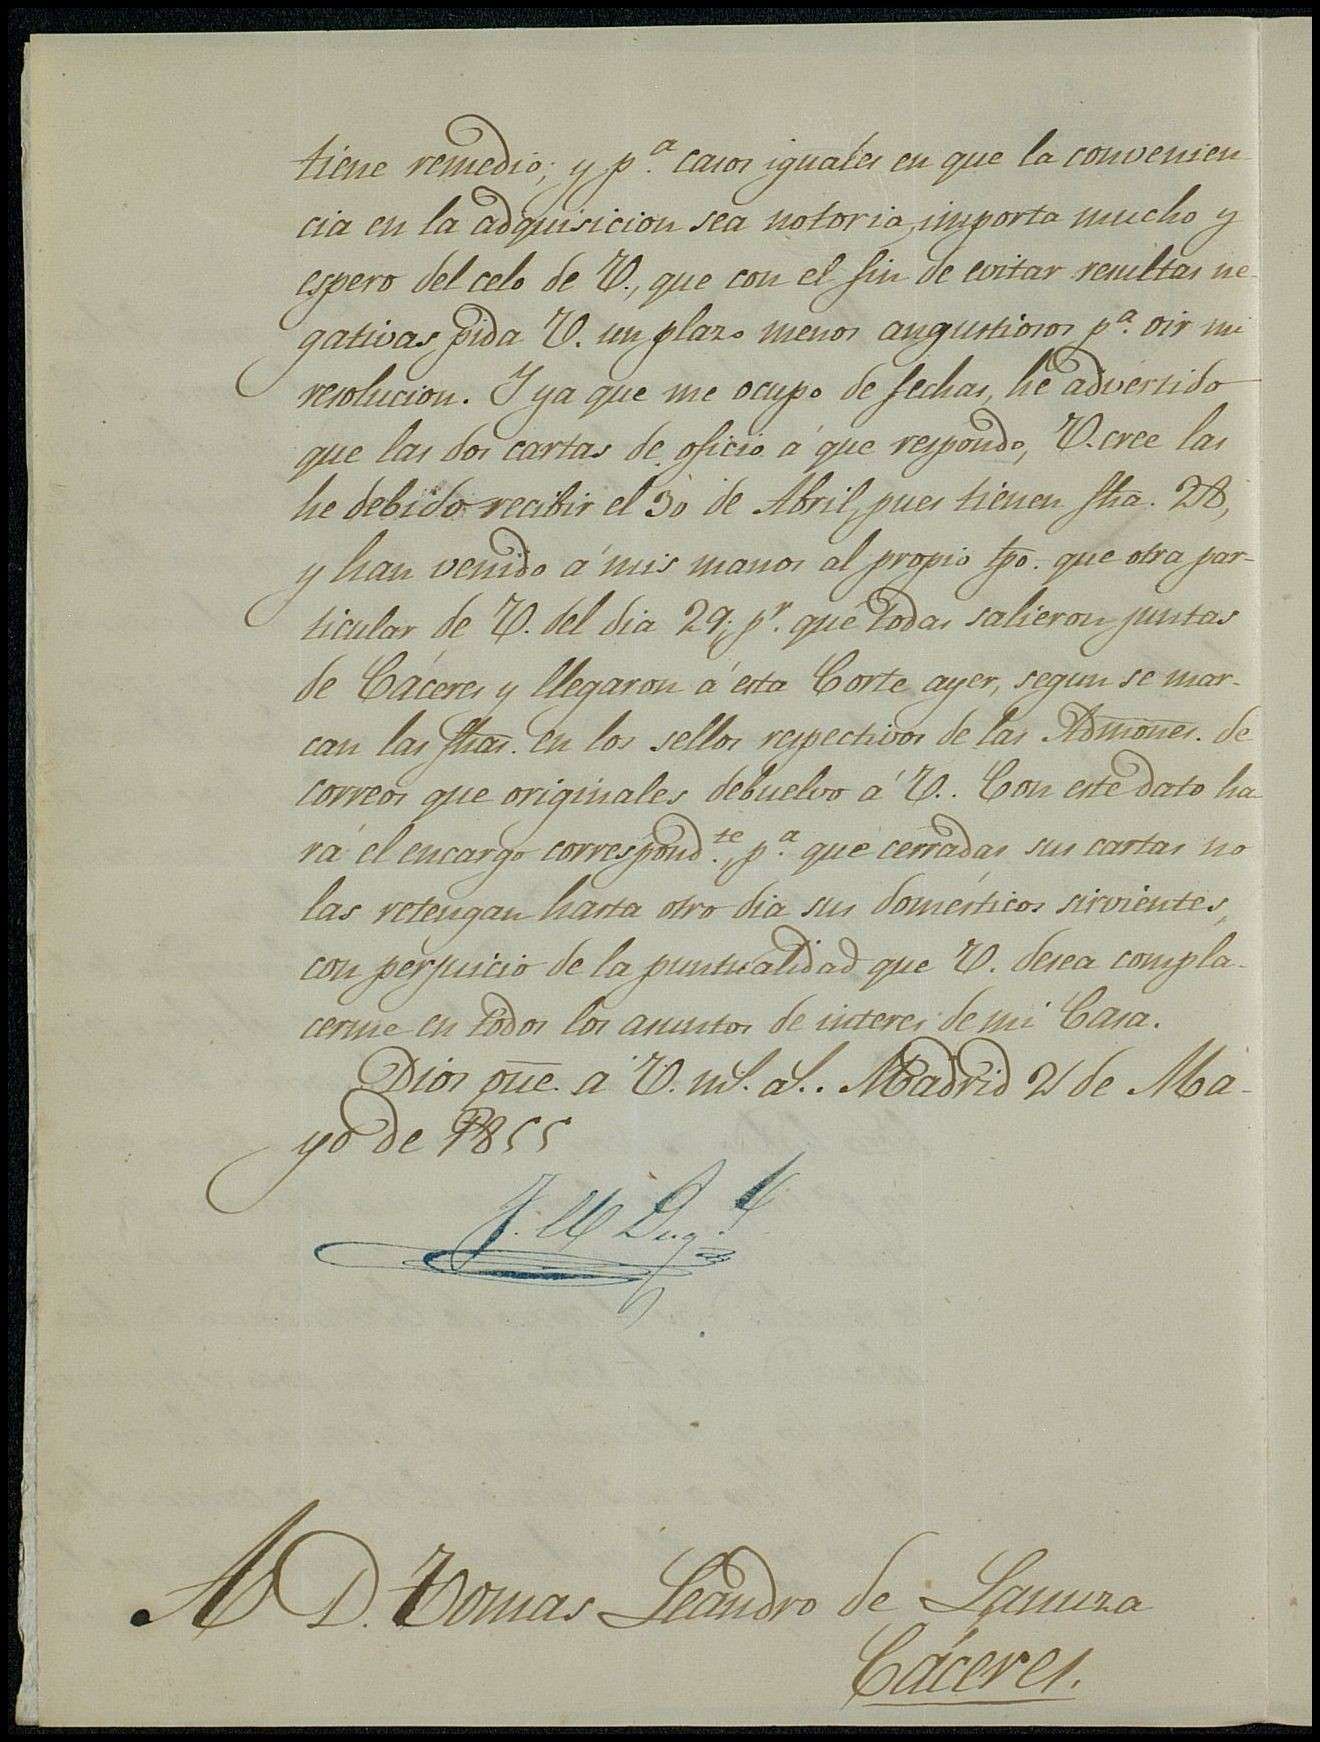 tiene remedio; y p.ª casos iguales en que la convenien
cia en la adquisicion sea notoria, importa mucho y
espero del celo de V., que con el fin de evitar resultas ne-
gativas pida V. un plazo menos angustiosos p.ª oir mi
resolucion. Y ya que me ocupo de fechas, he advertido
que las dos cartas de oficio á que respondo, V. cree las
he debido recibir el 30 de Abril, pues tienen fha. 28,
y han venido á mis manos al propio tpō. que otra par-
ticular de V. del dia 29; p.r que todas salieron juntas
de Cáceres y llegaron á esta Corte ayer, segun se mar-
can las fhas. en los sellos respectivos de las Admones. de
correos que originales debuelvo á V.. Con este dato ha
rá el encargo correspond.te, p.ª que cerradas sus cartas no
las retengan hasta otro dia sus domésticos sirvientes,
con perjuicio de la puntualidad que V. desea compla-
cerme en todos los asuntos de interes de mi Casa.
Dios gūe. á V. m.s a.s. Madrid 2 de Ma-
yo de 1855
A D. Tomas Leandro de Lanuza
Cáceres.